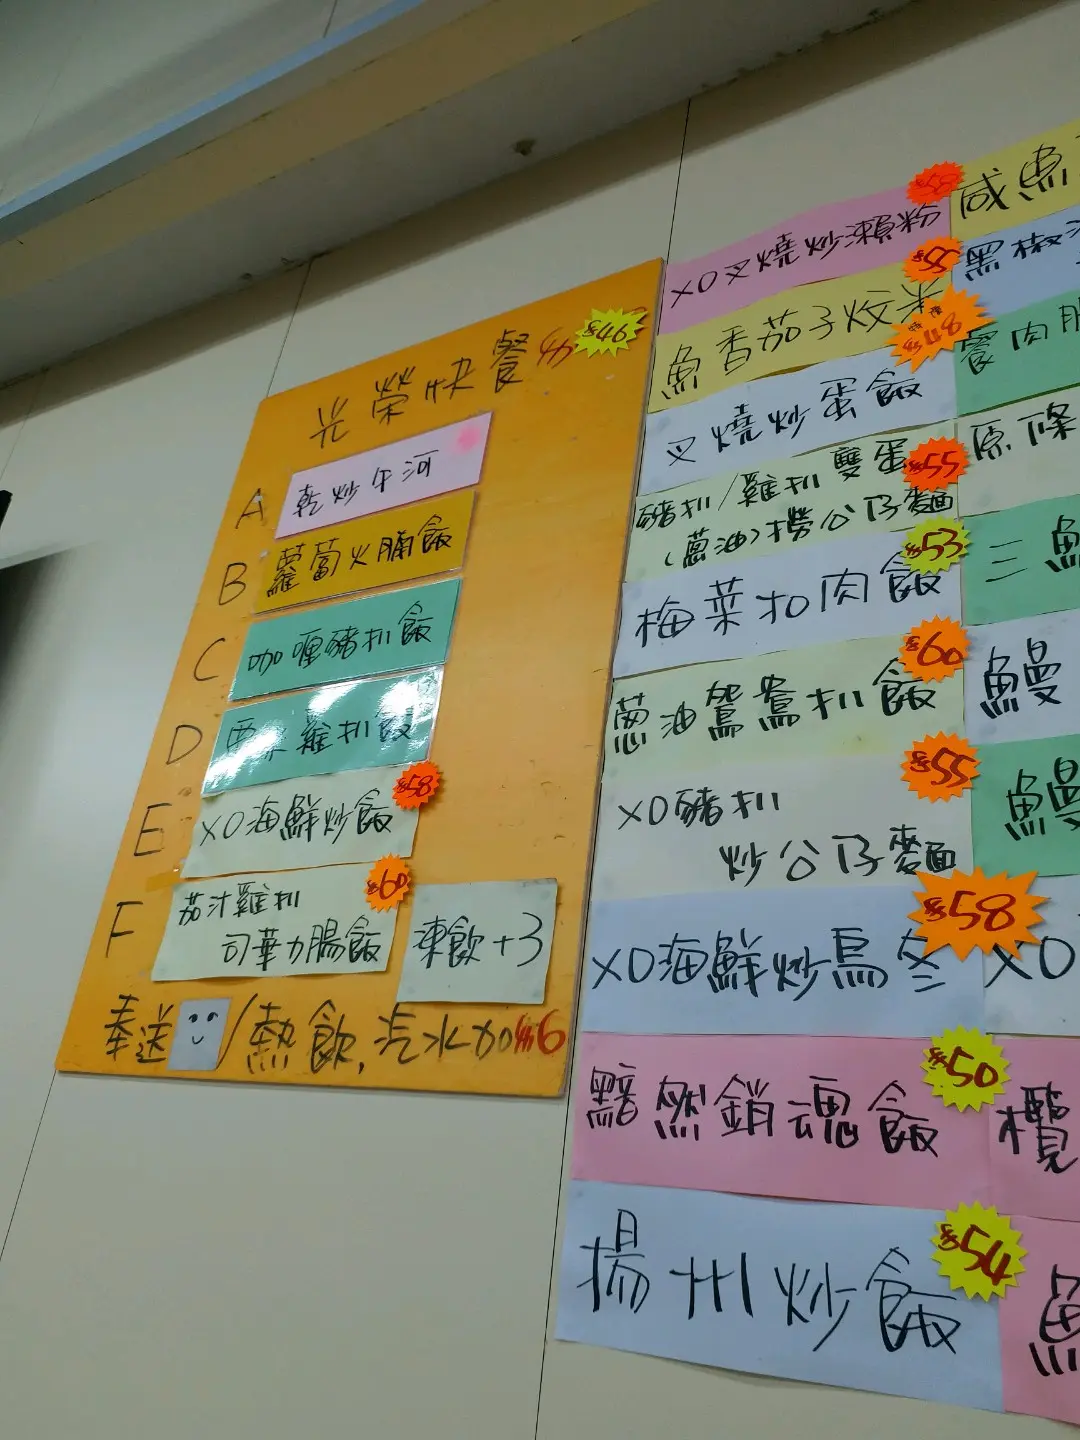 光榮快餐 $46
A 乾炒牛河
B 蘿蔔火腩飯
C 咖喱豬扒飯
D 雞扒飯
E XO海鮮炒飯 $58
F 茄汁雞扒
司華力腸飯 $60
凍飲+3
奉送 /熱飲,汽水加$6
XO叉燒炒瀨粉 $58
魚香茄子炆米 $55
叉燒炒蛋飯 $48
豬扒/雞扒雙蛋
(蔥油)撈公仔麵 $55
梅菜扣肉飯 $53
蔥油鴛鴦扒飯 $60
XO豬扒
炒公仔麵 $55
XO海鮮炒烏冬 $58
黯然銷魂飯 $50
揚州炒飯 $54
咸魚
黑椒
肉
原條
三
鰻
鰻
XO
欖